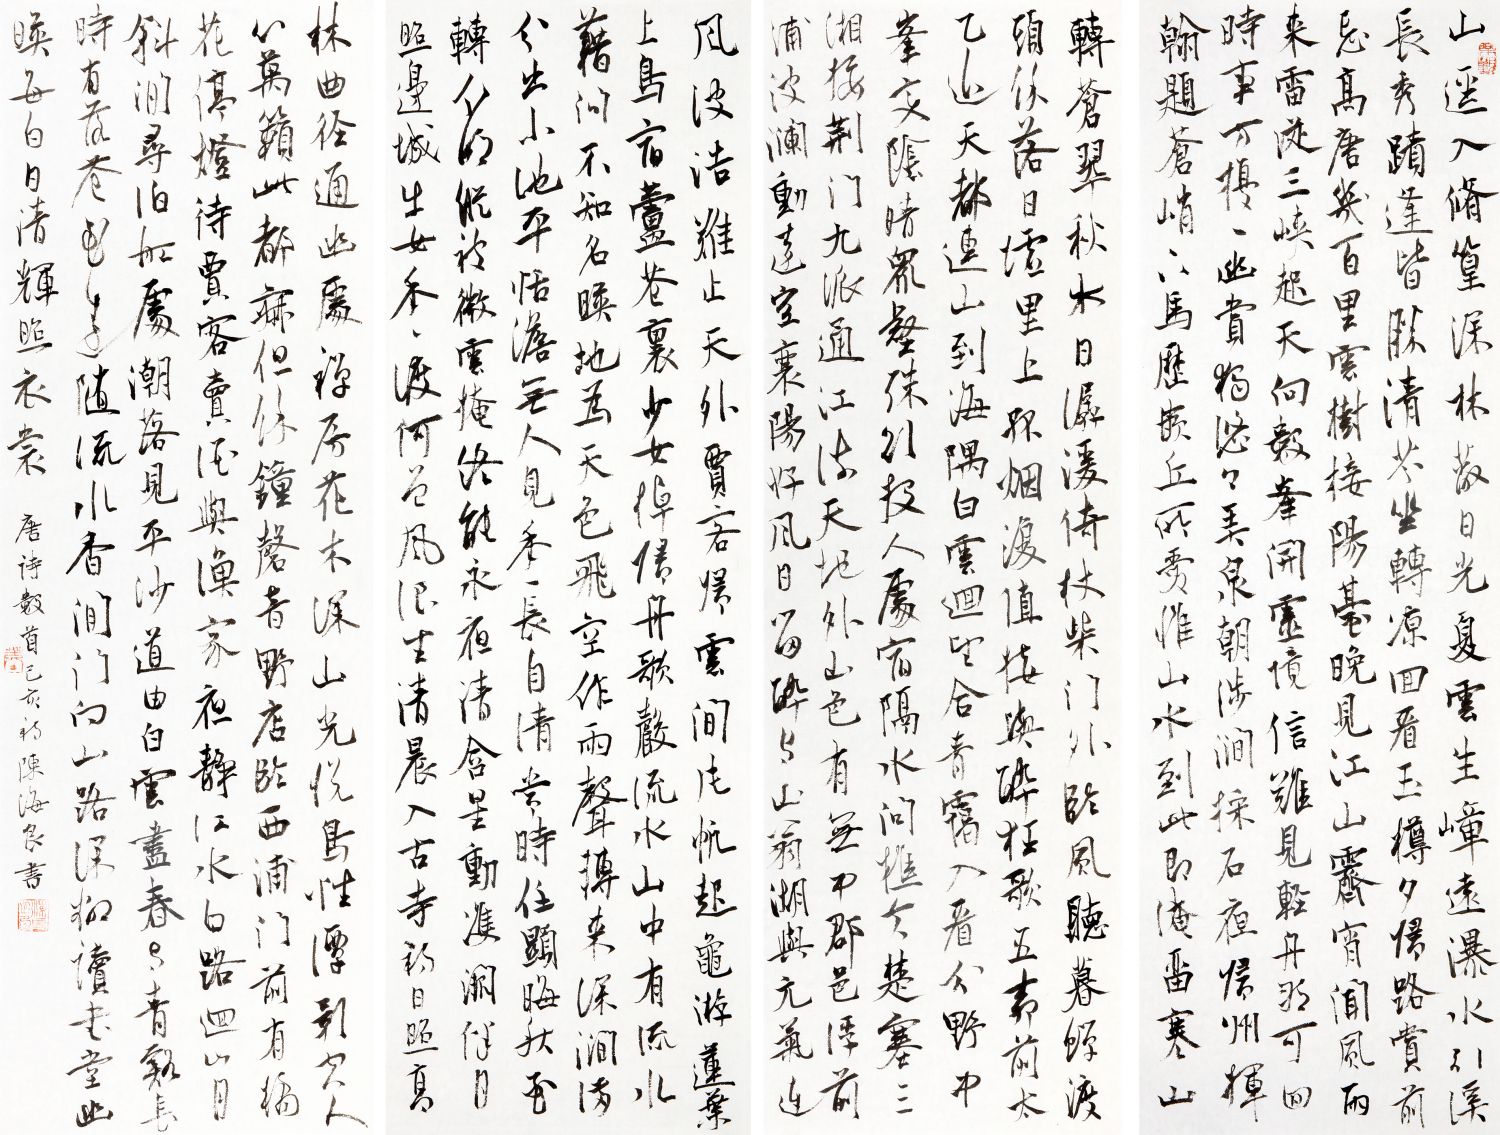 山遥入脩篁深林蔽日光夏雲生嶂遠瀑水引溪
長秀蹟逢皆勝清芬坐轉凉回看玉樽夕歸路賞前
忘高唐幾百里雲樹接陽臺晚見江山霽宵聞風雨
来雷從三峡起天向數峯開靈境信難見輕舟那可回
時事方擾〻幽賞獨悠〻弄泉朝涉澗採石夜歸州揮
翰題蒼峭下馬歷嵌丘所愛惟山水到此即淹留寒山
轉蒼翠秋水日潺湲倚杖柴门外臨風聽暮蟬渡
頭餘落日墟里上孤烟復值接輿醉狂歌五柳前太
乙近天都連山到海隅白雲迴望合青靄入看分野中
峯变陰晴眾壑殊欲投人處宿隔水问樵夫楚塞三
湘接荆门九派通江流天地外山色有無中郡邑浮前
浦波瀾動遠空襄陽好风日留醉与山翁湖與元氣連
风波浩難止天外賈客歸雲间片帆起龜游蓮葉
上鳥宿蘆花裏少女棹歸舟歌聲流水山中有流水
藉问不知名映地為天色飛空作雨聲轉来深澗满
分出小池平恬澹無人見年〻長自清赏時任顯晦秋至
轉分明後被微雲掩終能永夜清含星動雙闕伴月
照邊城牛女年〻渡何曾風浪生清晨入古寺初日照高
林曲径通幽處禅房花木深山光悦鳥性潭影空人
心萬籟此都寂但餘鐘磬音野店臨西浦门前有橘
花停燈待賈客賣酒與漁家夜静江水白路迴山月
斜闲尋泊船處潮落見平沙道由白雲盡春与青谿長
時有落花至遠随流水香闲门向山路深柳讀书堂幽
映每白日清輝照衣裳
唐詩數首己亥初陳海良書